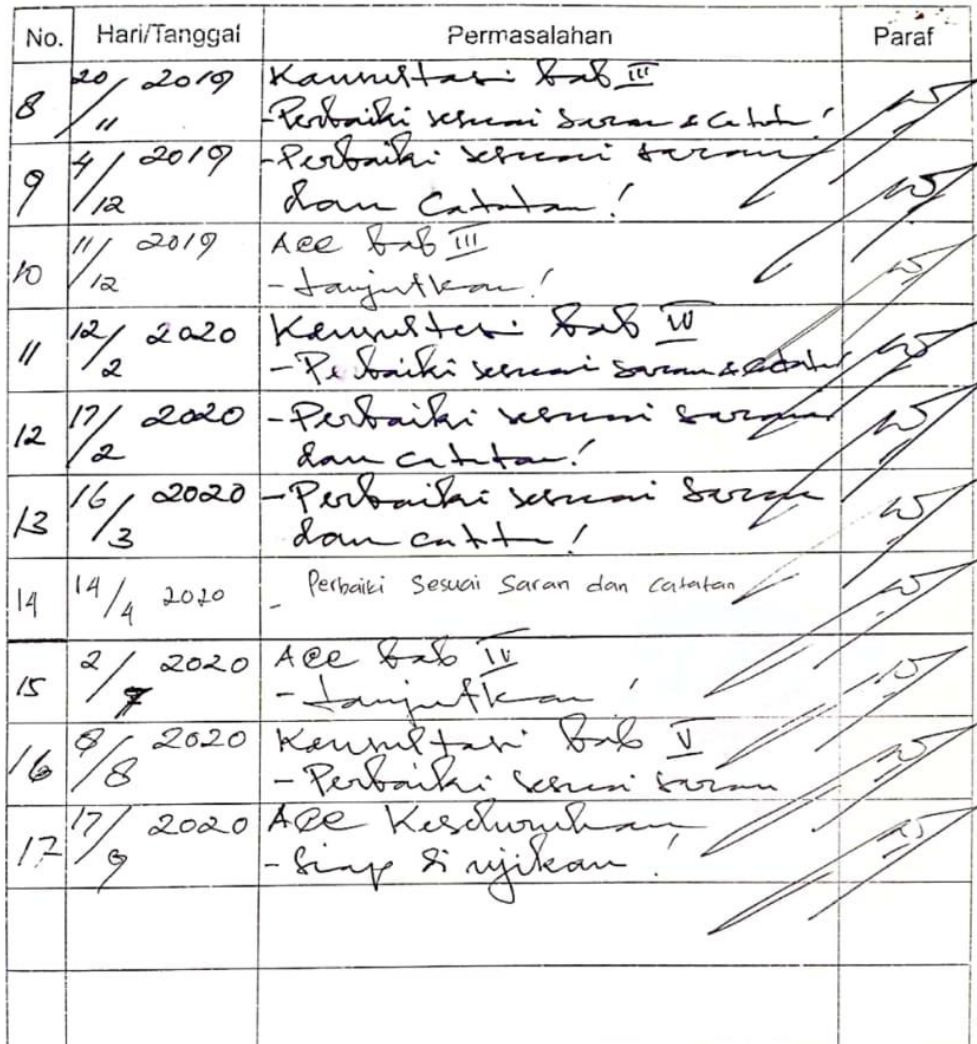 No. Hari/Tanggal Permasalahan Paraf
8 20/11 2019 Konsultasi Bab III
- Perbaiki sesuai saran & catatan!
9 4/12 2019 - Perbaiki sesuai saran
dan catatan!
10 11/12 2019 Acc Bab III
- Lanjutkan!
11 12/2 2020 Konsultasi Bab IV
- Perbaiki sesuai saran & catatan
12 17/2 2020 - Perbaiki sesuai saran
dan catatan!
13 16/3 2020 - Perbaiki sesuai saran
dan catatan!
14 14/4 2020 - Perbaiki Sesuai Saran dan Catatan
15 2/7 2020 Acc Bab IV
- Lanjutkan!
16 8/8 2020 Konsultasi Bab V
- Perbaiki sesuai saran
17 17/9 2020 Acc Keseluruhan
- Siap di ujikan!